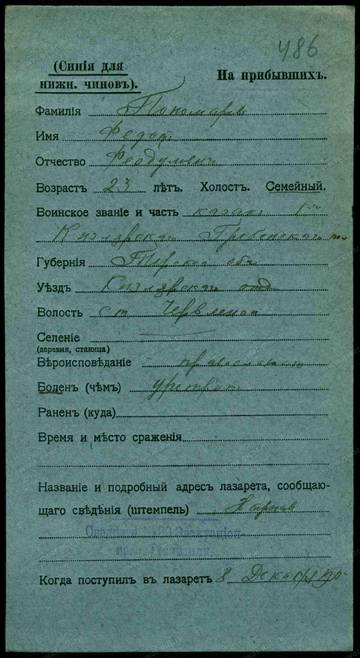 486
(Синія для
нижн. чиновъ).
На прибывшихъ.
Фамилія Пономаревъ
Имя Федотъ
Отчество
Возрастъ 23 лѣтъ. Холостъ. Семейный.
Воинское званіе и часть казакъ 1го
Кизлярскаго Гребенскаго
Губернія Терская обл
Уѣздъ Кизлярскаго отд
Волость ст Червленой
Селеніе
(деревня, станица)
Вѣроисповѣданіе
Боленъ (чѣмъ)
Раненъ (куда)
Время и мѣсто сраженія
Названіе и подробный адресъ лазарета, сообщаю-
щаго свѣдѣнія (штемпель)
Когда поступилъ въ лазаретъ 8 Декабря